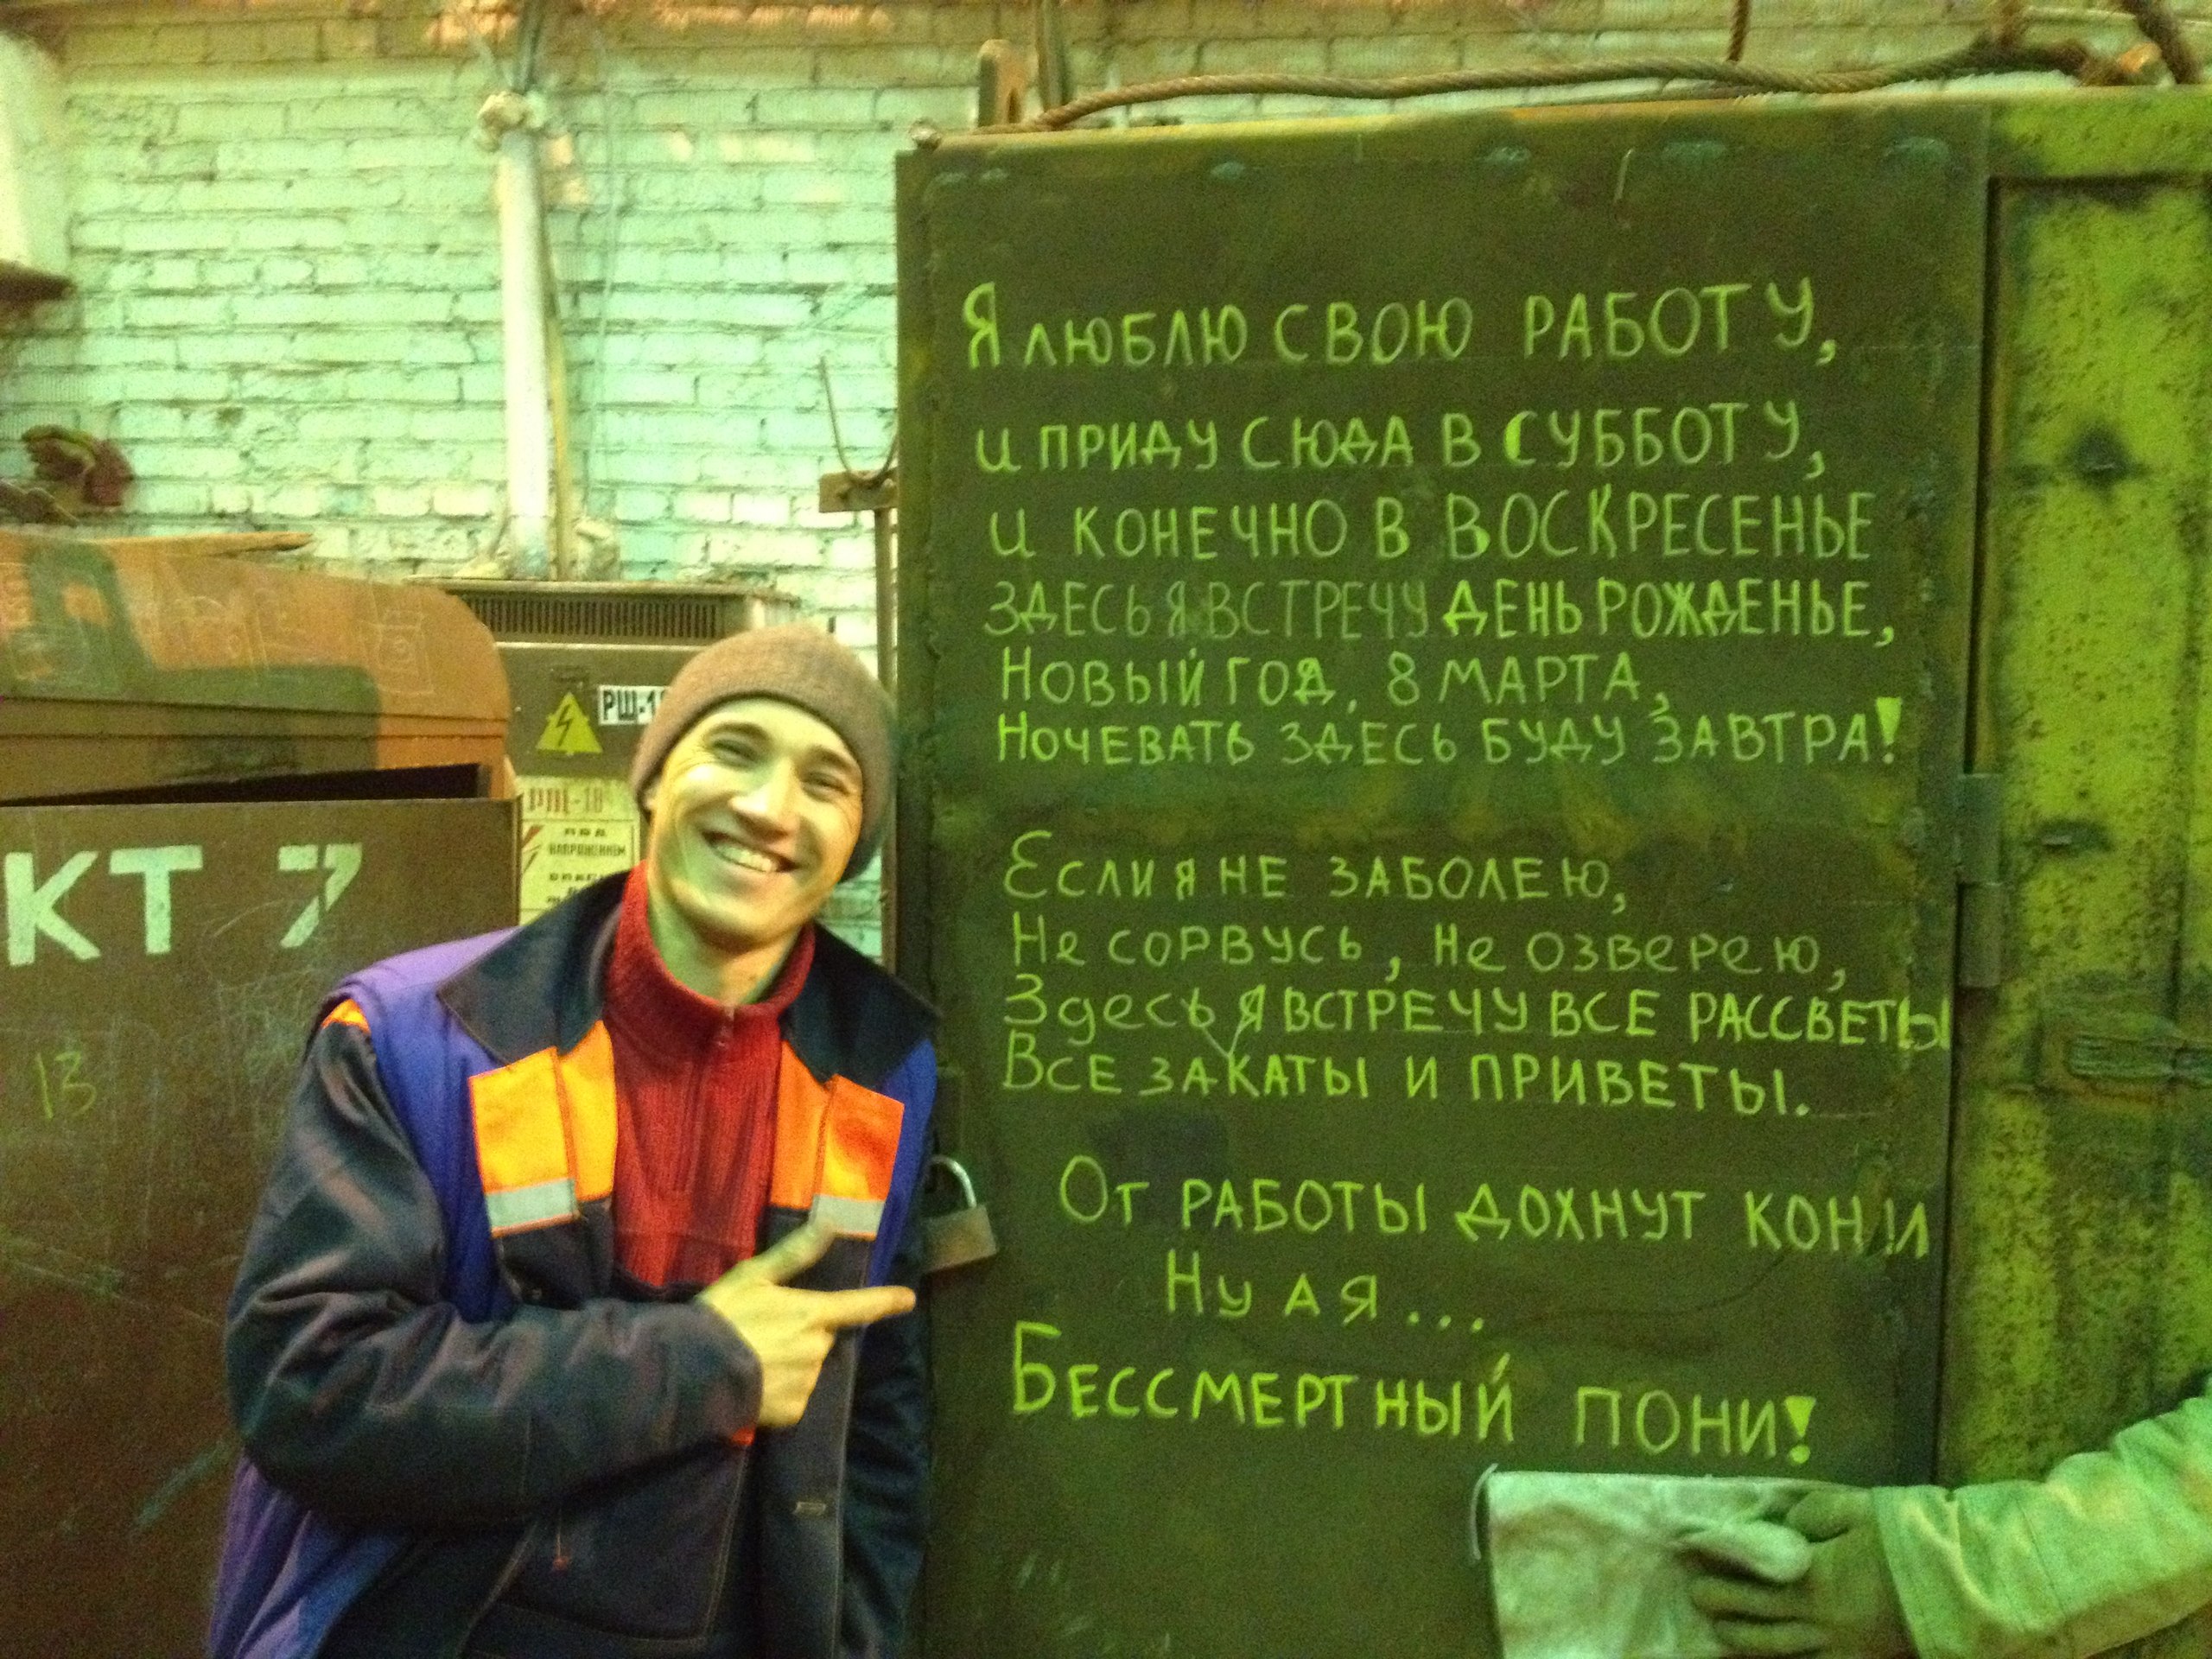 Я люблю свою работу,
и приду сюда в субботу,
и конечно в воскресенье
здесь я встречу день рожденье,
Новый год, 8 марта,
Ночевать здесь буду завтра!
Если я не заболею,
Не сорвусь, не озверею,
Здесь я встречу все рассветы
Все закаты и приветы.
От работы дохнут кони
Ну а я...
Бессмертный пони!
РШ-1
РЩ-18
ПОД
НАПРЯЖЕНИЕМ
КТ 7
13